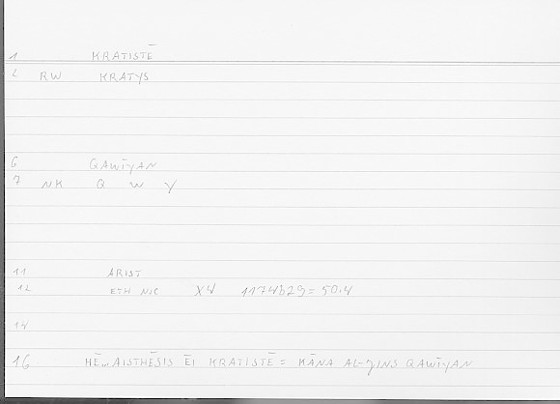 1 KRATISTĒ
2 RW KRATYS
6 QAWĪYAN
7 NK Q W Y
11 ARIST
12 ETH NIC X4 1174b29 = 50.4
14
16 HĒ... AISTHĒSIS ĒI KRATISTĒ = KĀNA AL-JINS QAWĪYAN